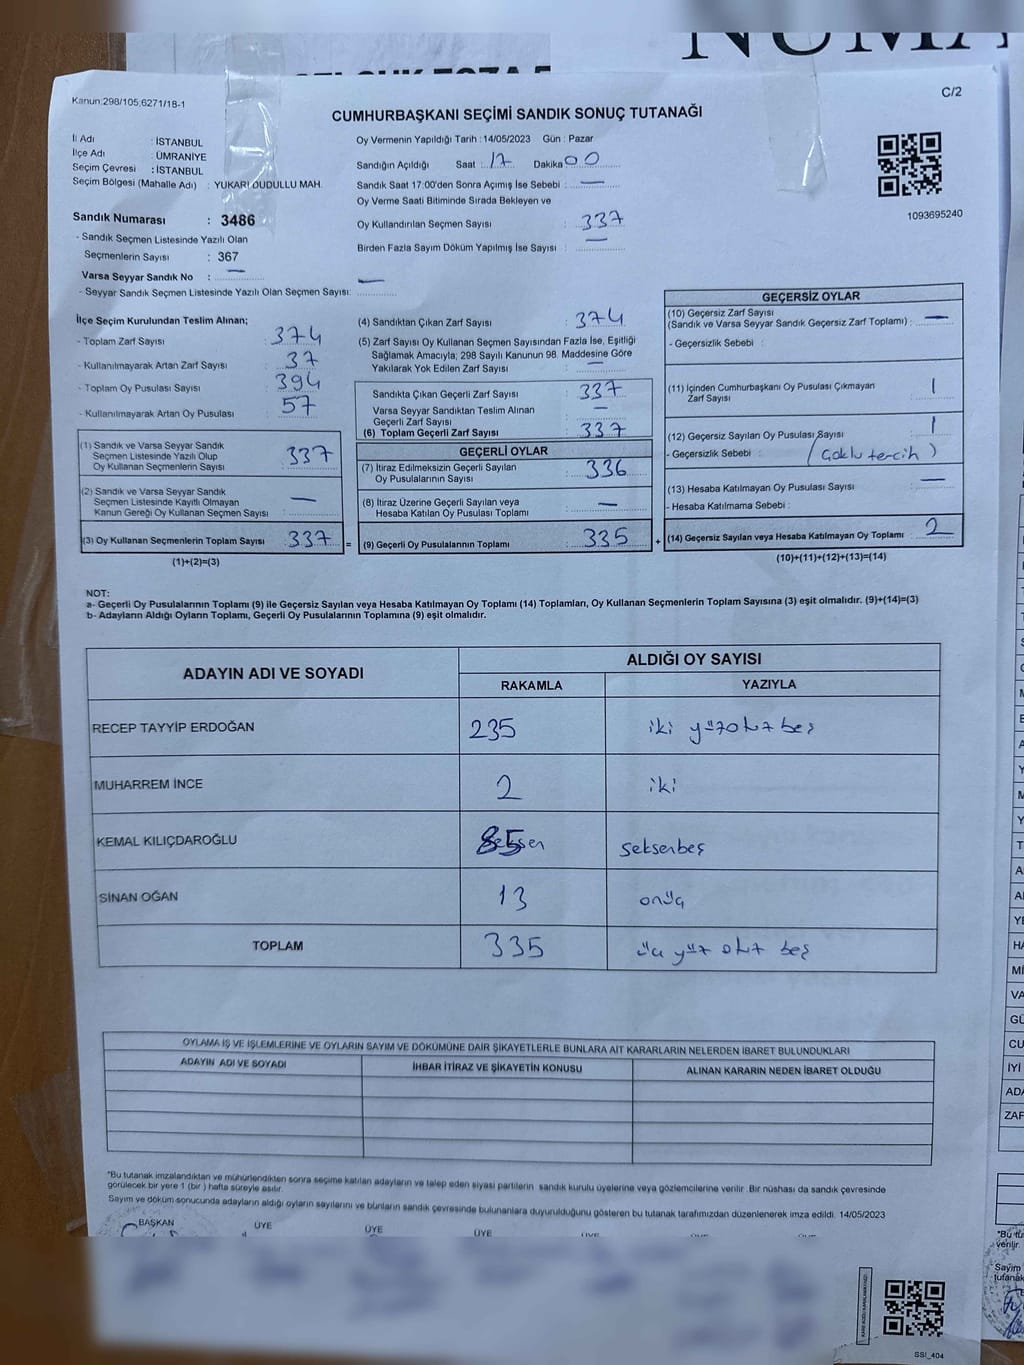 NUMA
C/2
Kanun:298/105;6271/18-1
CUMHURBAŞKANI SEÇİMİ SANDIK SONUÇ TUTANAĞI
İl Adı : İSTANBUL
İlçe Adı : ÜMRANİYE
Seçim Çevresi : İSTANBUL
Seçim Bölgesi (Mahalle Adı) : YUKARI DUDULLU MAH.
Sandık Numarası : 3486
- Sandık Seçmen Listesinde Yazılı Olan
Seçmenlerin Sayısı : 367
Varsa Seyyar Sandık No : —
- Seyyar Sandık Seçmen Listesinde Yazılı Olan Seçmen Sayısı: —
Oy Vermenin Yapıldığı Tarih : 14/05/2023 Gün : Pazar
Sandığın Açıldığı Saat : 17 Dakika 00
Sandık Saat 17:00'den Sonra Açımış İse Sebebi : —
Oy Verme Saati Bitiminde Sırada Bekleyen ve
Oy Kullandırılan Seçmen Sayısı : 337
Birden Fazla Sayım Döküm Yapılmış İse Sayısı : —
1093695240
İlçe Seçim Kurulundan Teslim Alınan;
- Toplam Zarf Sayısı : 374
- Kullanılmayarak Artan Zarf Sayısı : 37
- Toplam Oy Pusulası Sayısı : 394
- Kullanılmayarak Artan Oy Pusulası : 57
(1) Sandık ve Varsa Seyyar Sandık
Seçmen Listesinde Yazılı Olup
Oy Kullanan Seçmenlerin Sayısı : 337
(2) Sandık ve Varsa Seyyar Sandık
Seçmen Listesinde Kayıtlı Olmayan
Kanun Gereği Oy Kullanan Seçmen Sayısı : —
(3) Oy Kullanan Seçmenlerin Toplam Sayısı : 337 =
(1)+(2)=(3)
(4) Sandıktan Çıkan Zarf Sayısı : 374
(5) Zarf Sayısı Oy Kullanan Seçmen Sayısından Fazla İse, Eşitliği
Sağlamak Amacıyla; 298 Sayılı Kanunun 98. Maddesine Göre
Yakılarak Yok Edilen Zarf Sayısı : —
Sandıkta Çıkan Geçerli Zarf Sayısı : 337
Varsa Seyyar Sandıktan Teslim Alınan
Geçerli Zarf Sayısı : —
(6) Toplam Geçerli Zarf Sayısı : 337
GEÇERLİ OYLAR
(7) İtiraz Edilmeksizin Geçerli Sayılan
Oy Pusulasının Sayısı : 336
(8) İtiraz Üzerine Geçerli Sayılan veya
Hesaba Katılan Oy Pusulası Toplamı : —
(9) Geçerli Oy Pusulalarının Toplamı : 335 +
GEÇERSİZ OYLAR
(10) Geçersiz Zarf Sayısı
(Sandık ve Varsa Seyyar Sandık Geçersiz Zarf Toplamı) : —
- Geçersizlik Sebebi :
(11) İçinden Cumhurbaşkanı Oy Pusulası Çıkmayan
Zarf Sayısı : 1
(12) Geçersiz Sayılan Oy Pusulası Sayısı : 1
- Geçersizlik Sebebi : (Çoklu tercih)
(13) Hesaba Katılmayan Oy Pusulası Sayısı : —
- Hesaba Katılmama Sebebi :
(14) Geçersiz Sayılan veya Hesaba Katılmayan Oy Toplamı : 2
(10)+(11)+(12)+(13)=(14)
NOT:
a- Geçerli Oy Pusulalarının Toplamı (9) ile Geçersiz Sayılan veya Hesaba Katılmayan Oy Toplamı (14) Toplamları, Oy Kullanan Seçmenlerin Toplam Sayısına (3) eşit olmalıdır. (9)+(14)=(3)
b- Adayların Aldığı Oyların Toplamı, Geçerli Oy Pusulalarının Toplamına (9) eşit olmalıdır.
ADAYIN ADI VE SOYADI ALDIĞI OY SAYISI
RAKAMLA YAZIYLA
RECEP TAYYİP ERDOĞAN 235 iki yüz otuz beş
MUHARREM İNCE 2 iki
KEMAL KILIÇDAROĞLU 85 seksenbeş
SİNAN OĞAN 13 onüç
TOPLAM 335 üç yüz otuz beş
OYLAMA İŞ VE İŞLEMLERİNE VE OYLARIN SAYIM VE DÖKÜMÜNE DAİR ŞİKAYETLERLE BUNLARA AİT KARARLARIN NELERDEN İBARET BULUNDUKLARI
ADAYIN ADI VE SOYADI İHBAR İTİRAZ VE ŞİKAYETİN KONUSU ALINAN KARARIN NEDEN İBARET OLDUĞU
*Bu tutanak imzalandıktan ve mühürlendikten sonra seçime katılan adayların ve talep eden siyasi partilerin sandık kurulu üyelerine veya gözlemcilerine verilir. Bir nüshası da sandık çevresinde
görülecek bir yere 1 (bir ) hafta süreyle asılır.
Sayım ve döküm sonucunda adayların aldığı oyların sayılarını ve bunların sandık çevresinde bulunanlara duyurulduğunu gösteren bu tutanak tarafımızdan düzenlenerek imza edildi. 14/05/2023
BAŞKAN ÜYE ÜYE ÜYE
SSI_404